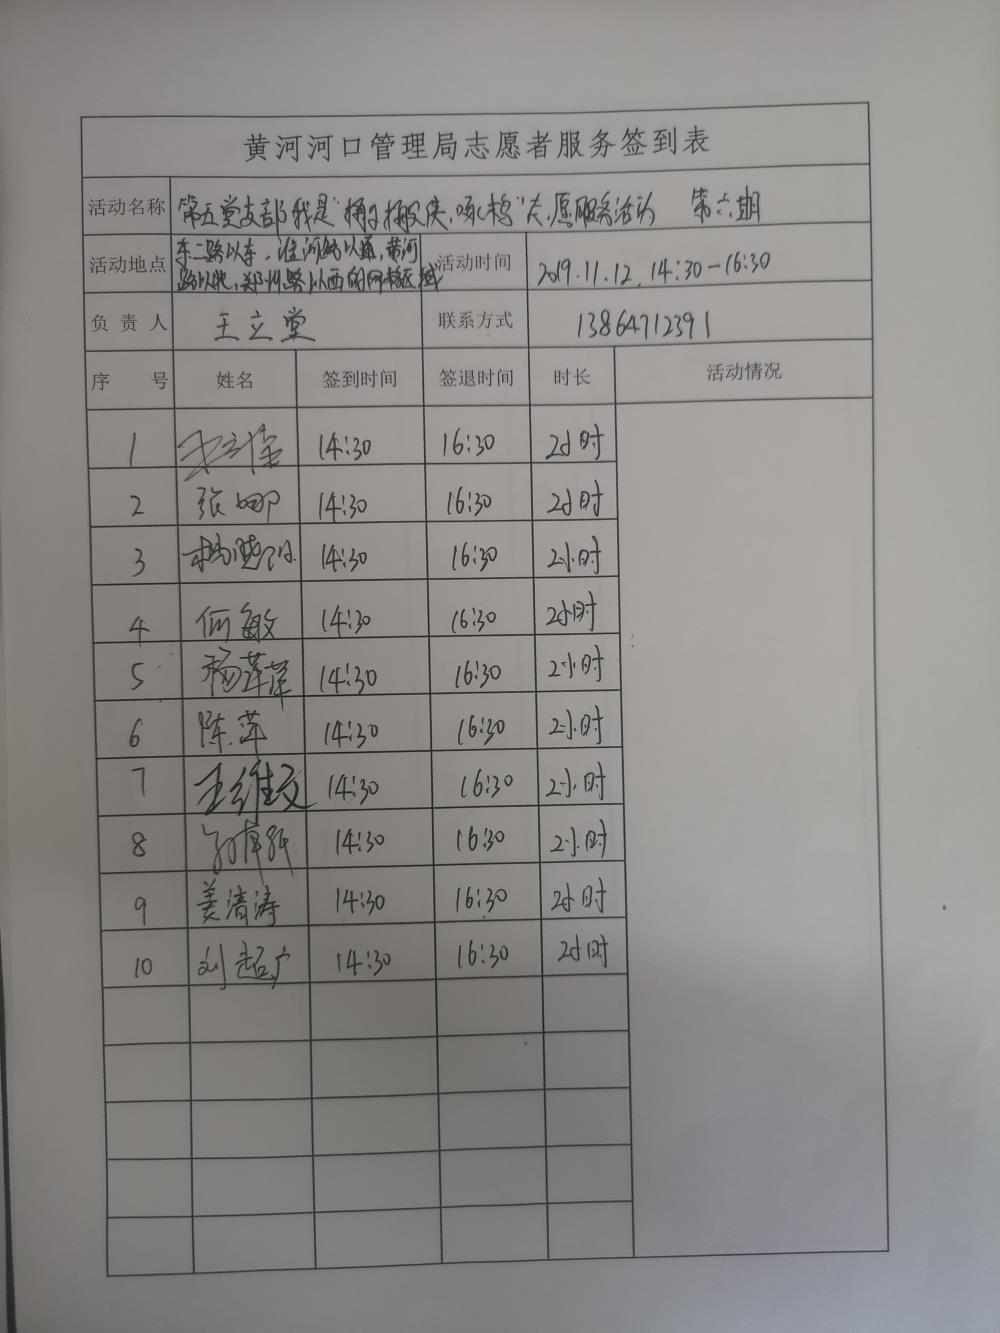 黄河河口管理局志愿者服务签到表
活动名称 第五党支部"我是 侠.啄木鸟"志愿服务活动 第六期
活动地点 东二路以东,淮河路以 ,黄河
路以北,郑州路以西的网格区域
活动时间 2019.11.12. 14:30-16:30
负责人 王立堂 联系方式 13864712391
序号 姓名 签到时间 签退时间 时长 活动情况
1 14:30 16:30 2小时
2 张娜 14:30 16:30 2小时
3 14:30 16:30 2小时
4 何敏 14:30 16:30 2小时
5 杨萍萍 14:30 16:30 2小时
6 陈萍 14:30 16:30 2小时
7 王维文 14:30 16:30 2小时
8 14:30 16:30 2小时
9 姜清涛 14:30 16:30 2小时
10 刘超广 14:30 16:30 2小时